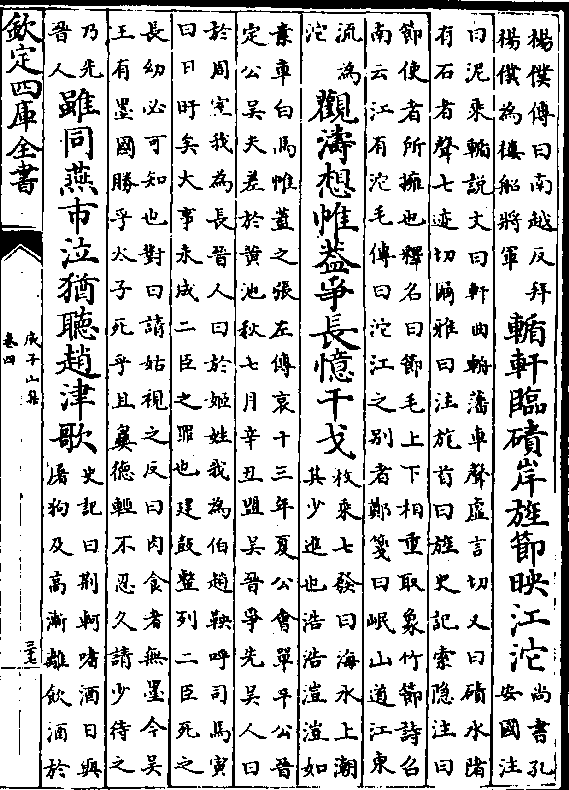 楊僕傳曰南越反拜
楊僕為樓船將軍
輴軒臨磧岸旌節映江沱
尚書孔
安國注
曰泥乘輴説文曰軒曲輈藩車聲虛言切又曰磧水陼
有石者聲七迹切爾雅曰注旄首曰旌史記索隱注曰
節使者所擁也釋名曰節毛上下相重取象竹節詩召
南云江有沱毛傳曰沱江之别者鄭箋曰岷山道江東
流為
沱
觀濤想帷葢爭長憶干戈
枚乘七發曰海水上潮
其少進也浩浩溰溰如
素車白馬帷蓋之張左傳哀十三年夏公會單平公晉
定公吳夫差於黄池秋七月辛丑盟吳晉爭先吳人曰
於周室我為長晉人曰於姬姓我為伯趙鞅呼司馬寅
曰日旰矣大事未成二臣之罪也建鼓整列二臣死之
長幼必可知也對曰請姑視之反曰肉食者無墨今吳
王有墨國勝乎太子死乎且夷德輕不忍久請少待之
乃先
晉人
雖同燕市泣猶聽趙津歌
史記曰荆軻嗜酒日與
屠狗及高漸離飲酒於
欽定四庫全書
庾子山集
卷四